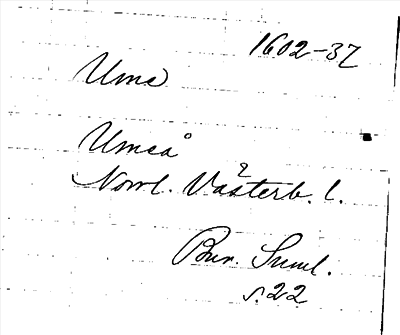 1602-37
Uma
Umeå
Norrl. Västerb. l.
Bur. Suml.
s. 22